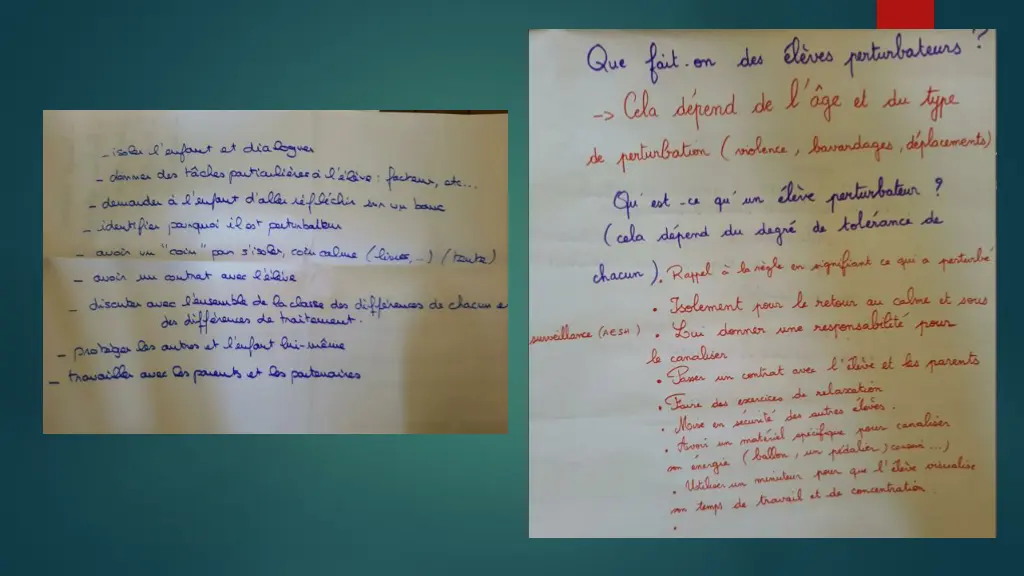 - isoler l'enfant et dialoguer
- donner des tâches particulières à l'élève : facteur, etc...
- demander à l'enfant d'aller réfléchir sur un banc
- identifier pourquoi il est perturbateur
- avoir un "coin" pour s'isoler, coin calme (livres, ...) (tente)
- avoir un contrat avec l'élève
- discuter avec l'ensemble de la classe des différences de chacun e
des différences de traitement.
- protéger les autres et l'enfant lui-même
- travailler avec les parents et les partenaires
Que fait-on des élèves perturbateurs ?
-> Cela dépend de l'âge et du type
de perturbation (violence, bavardages, déplacements)
Qu'est-ce qu'un élève perturbateur ?
(cela dépend du degré de tolérance de
chacun). • Rappel à la règle en signifiant ce qui a perturbé
• Isolement pour le retour au calme et sous
surveillance (AESH) • Lui donner une responsabilité pour
le canaliser
• Passer un contrat avec l'élève et les parents
• Faire des exercices de relaxation
• Mise en sécurité des autres élèves.
• Avoir un matériel spécifique pour canaliser
son énergie (ballon, un pédalier, coussin ...)
• Utiliser un minuteur pour que l'élève visualise
son temps de travail et de concentration
•